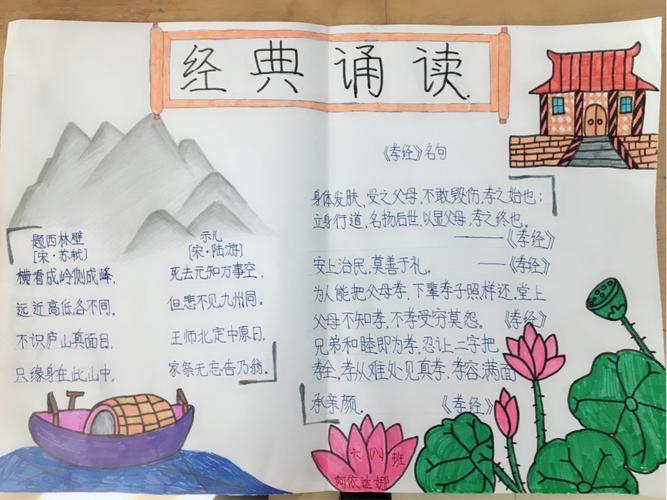 经典诵读
题西林壁
[宋·苏轼]
横看成岭侧成峰,
远近高低各不同.
不识庐山真面目,
只缘身在此山中.
示儿
[宋·陆游]
死去元知万事空,
但悲不见九州同.
王师北定中原日,
家祭无忘告乃翁.
《孝经》名句
身体发肤,受之父母,不敢毁伤,孝之始也;
立身行道,名扬后世,以显父母,孝之终也。
——《孝经》
安上治民,莫善于礼。 ——《孝经》
为人能把父母孝,下辈孝子照样还,堂上
父母不知孝,不孝受穷莫怨。《孝经》
兄弟和睦即为孝,忍让二字把
孝全,孝从难处见真孝,孝容满面
承亲颜。 《孝经》
六八班
阿依达娜